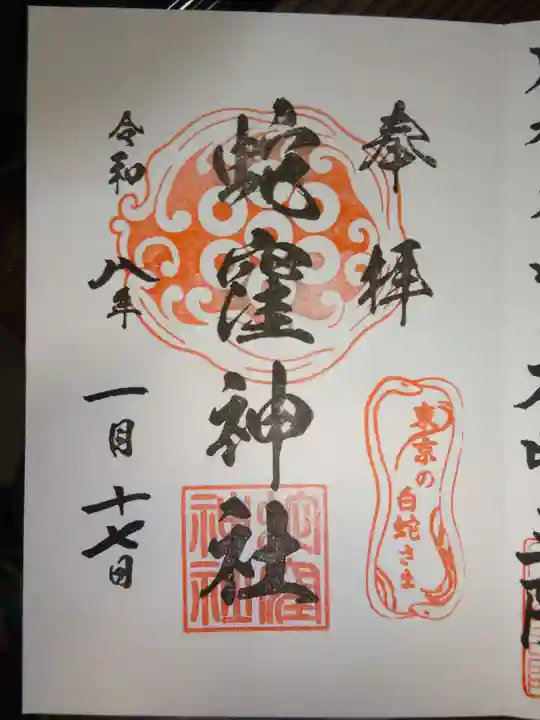 奉拝
蛇窪神社
令和八年
一月十七日
東京の
白蛇さま
蛇窪
神社